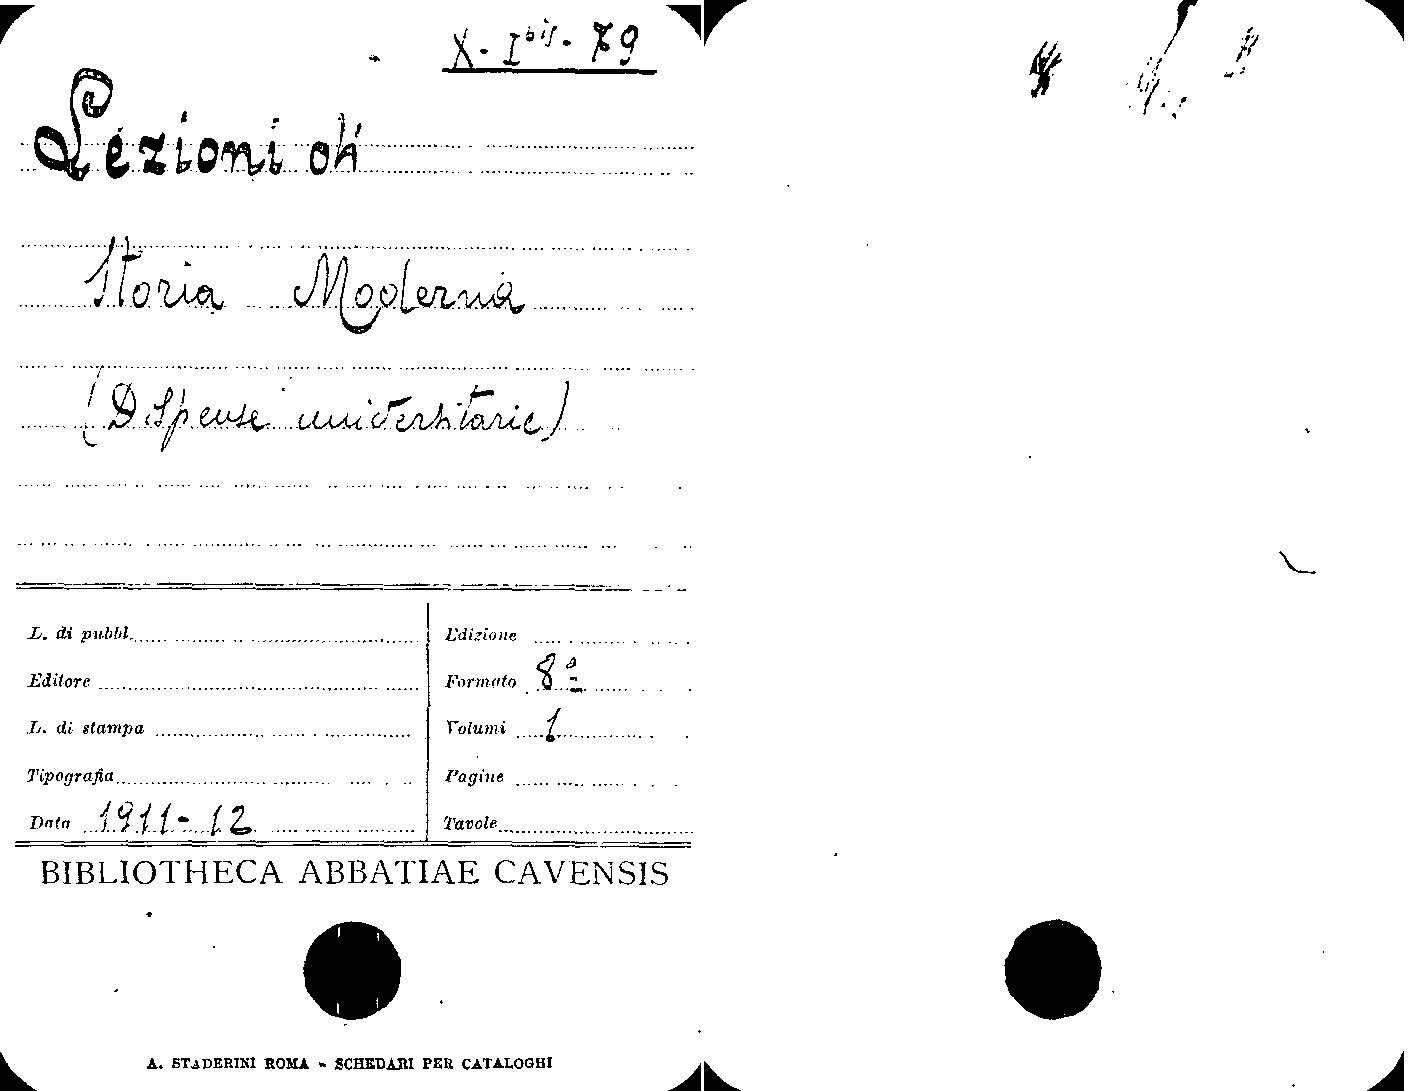 X-I bis-79
Lezioni di
Storia Moderna
(Dispense universitarie)
L. di pubbl.
Edizione
Editore
Formato 8º
L. di stampa
Volumi 1
Tipografia
Pagine
Data 1911-12
Tavole
BIBLIOTHECA ABBATIAE CAVENSIS
A. STADERINI ROMA - SCHEDARI PER CATALOGHI